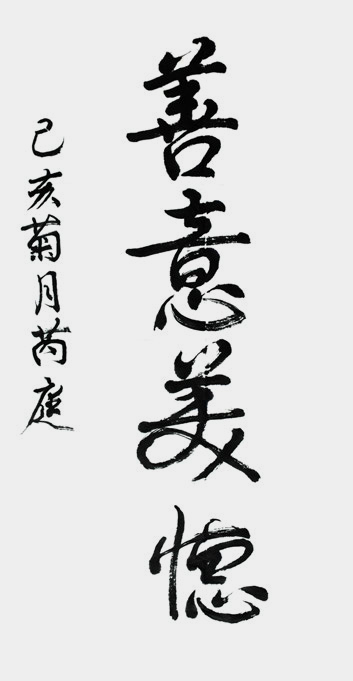 善意美德
己亥菊月芮庭